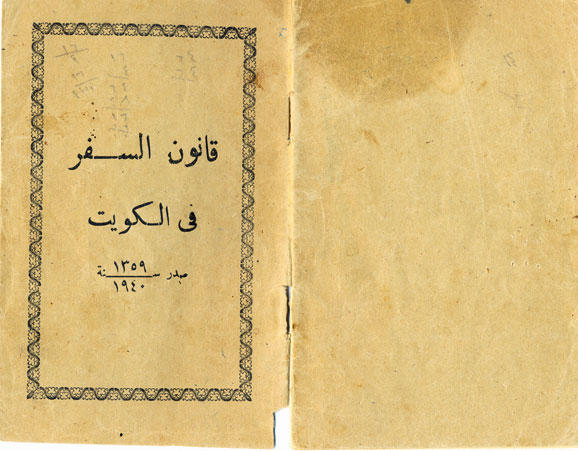 قانون السفر
في الكويت
صدر سنة ١٣٥٩
١٩٤٠